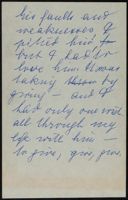 his faults and
weaknesses. I
pitied him for
but I had to
love him. It was
taking them by
giving - and I
had only one wish
all through my
life with him
to give, give, give.